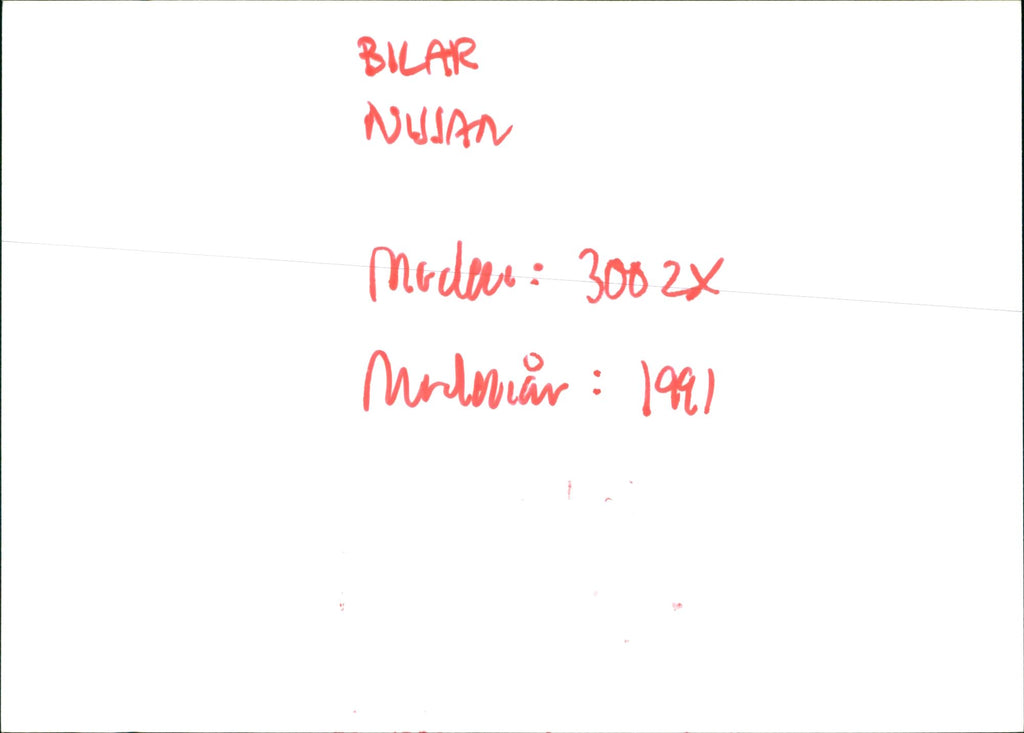 BILAR
NISSAN
Modell: 300ZX
Modellår: 1991